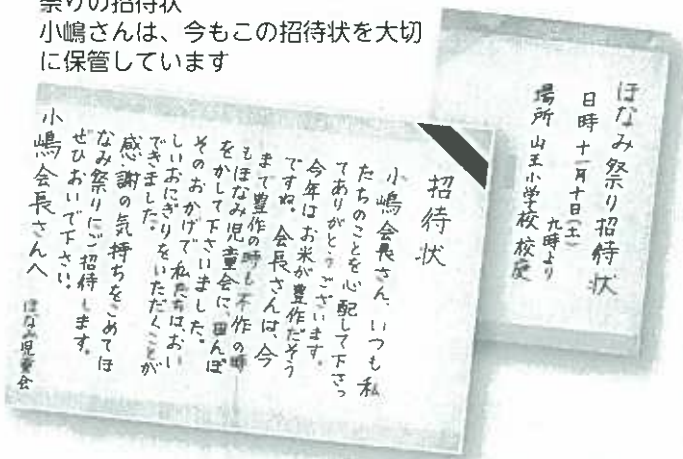 祭りの招待状
小嶋さんは、今もこの招待状を大切
に保管しています
ほなみ祭り招待状
日時 十一月十日(土)
九時より
場所 山王小学校 校庭
招待状
小嶋会長さん、いつも私
たちのことを心配して下さっ
てありがとうございます。
今年はお米が豊作だそう
ですね。会長さんは、今
まで豊作の時も不作の時
もほなみ児童会に、田んぼ
をかして下さいました。
そのおかげで、私たちはおい
しいおにぎりをいただくことが
できました。
感謝の気持ちをこめてほ
なみ祭りにご招待します。
ぜひおいで下さい。
小嶋会長さんへ
ほなみ児童会